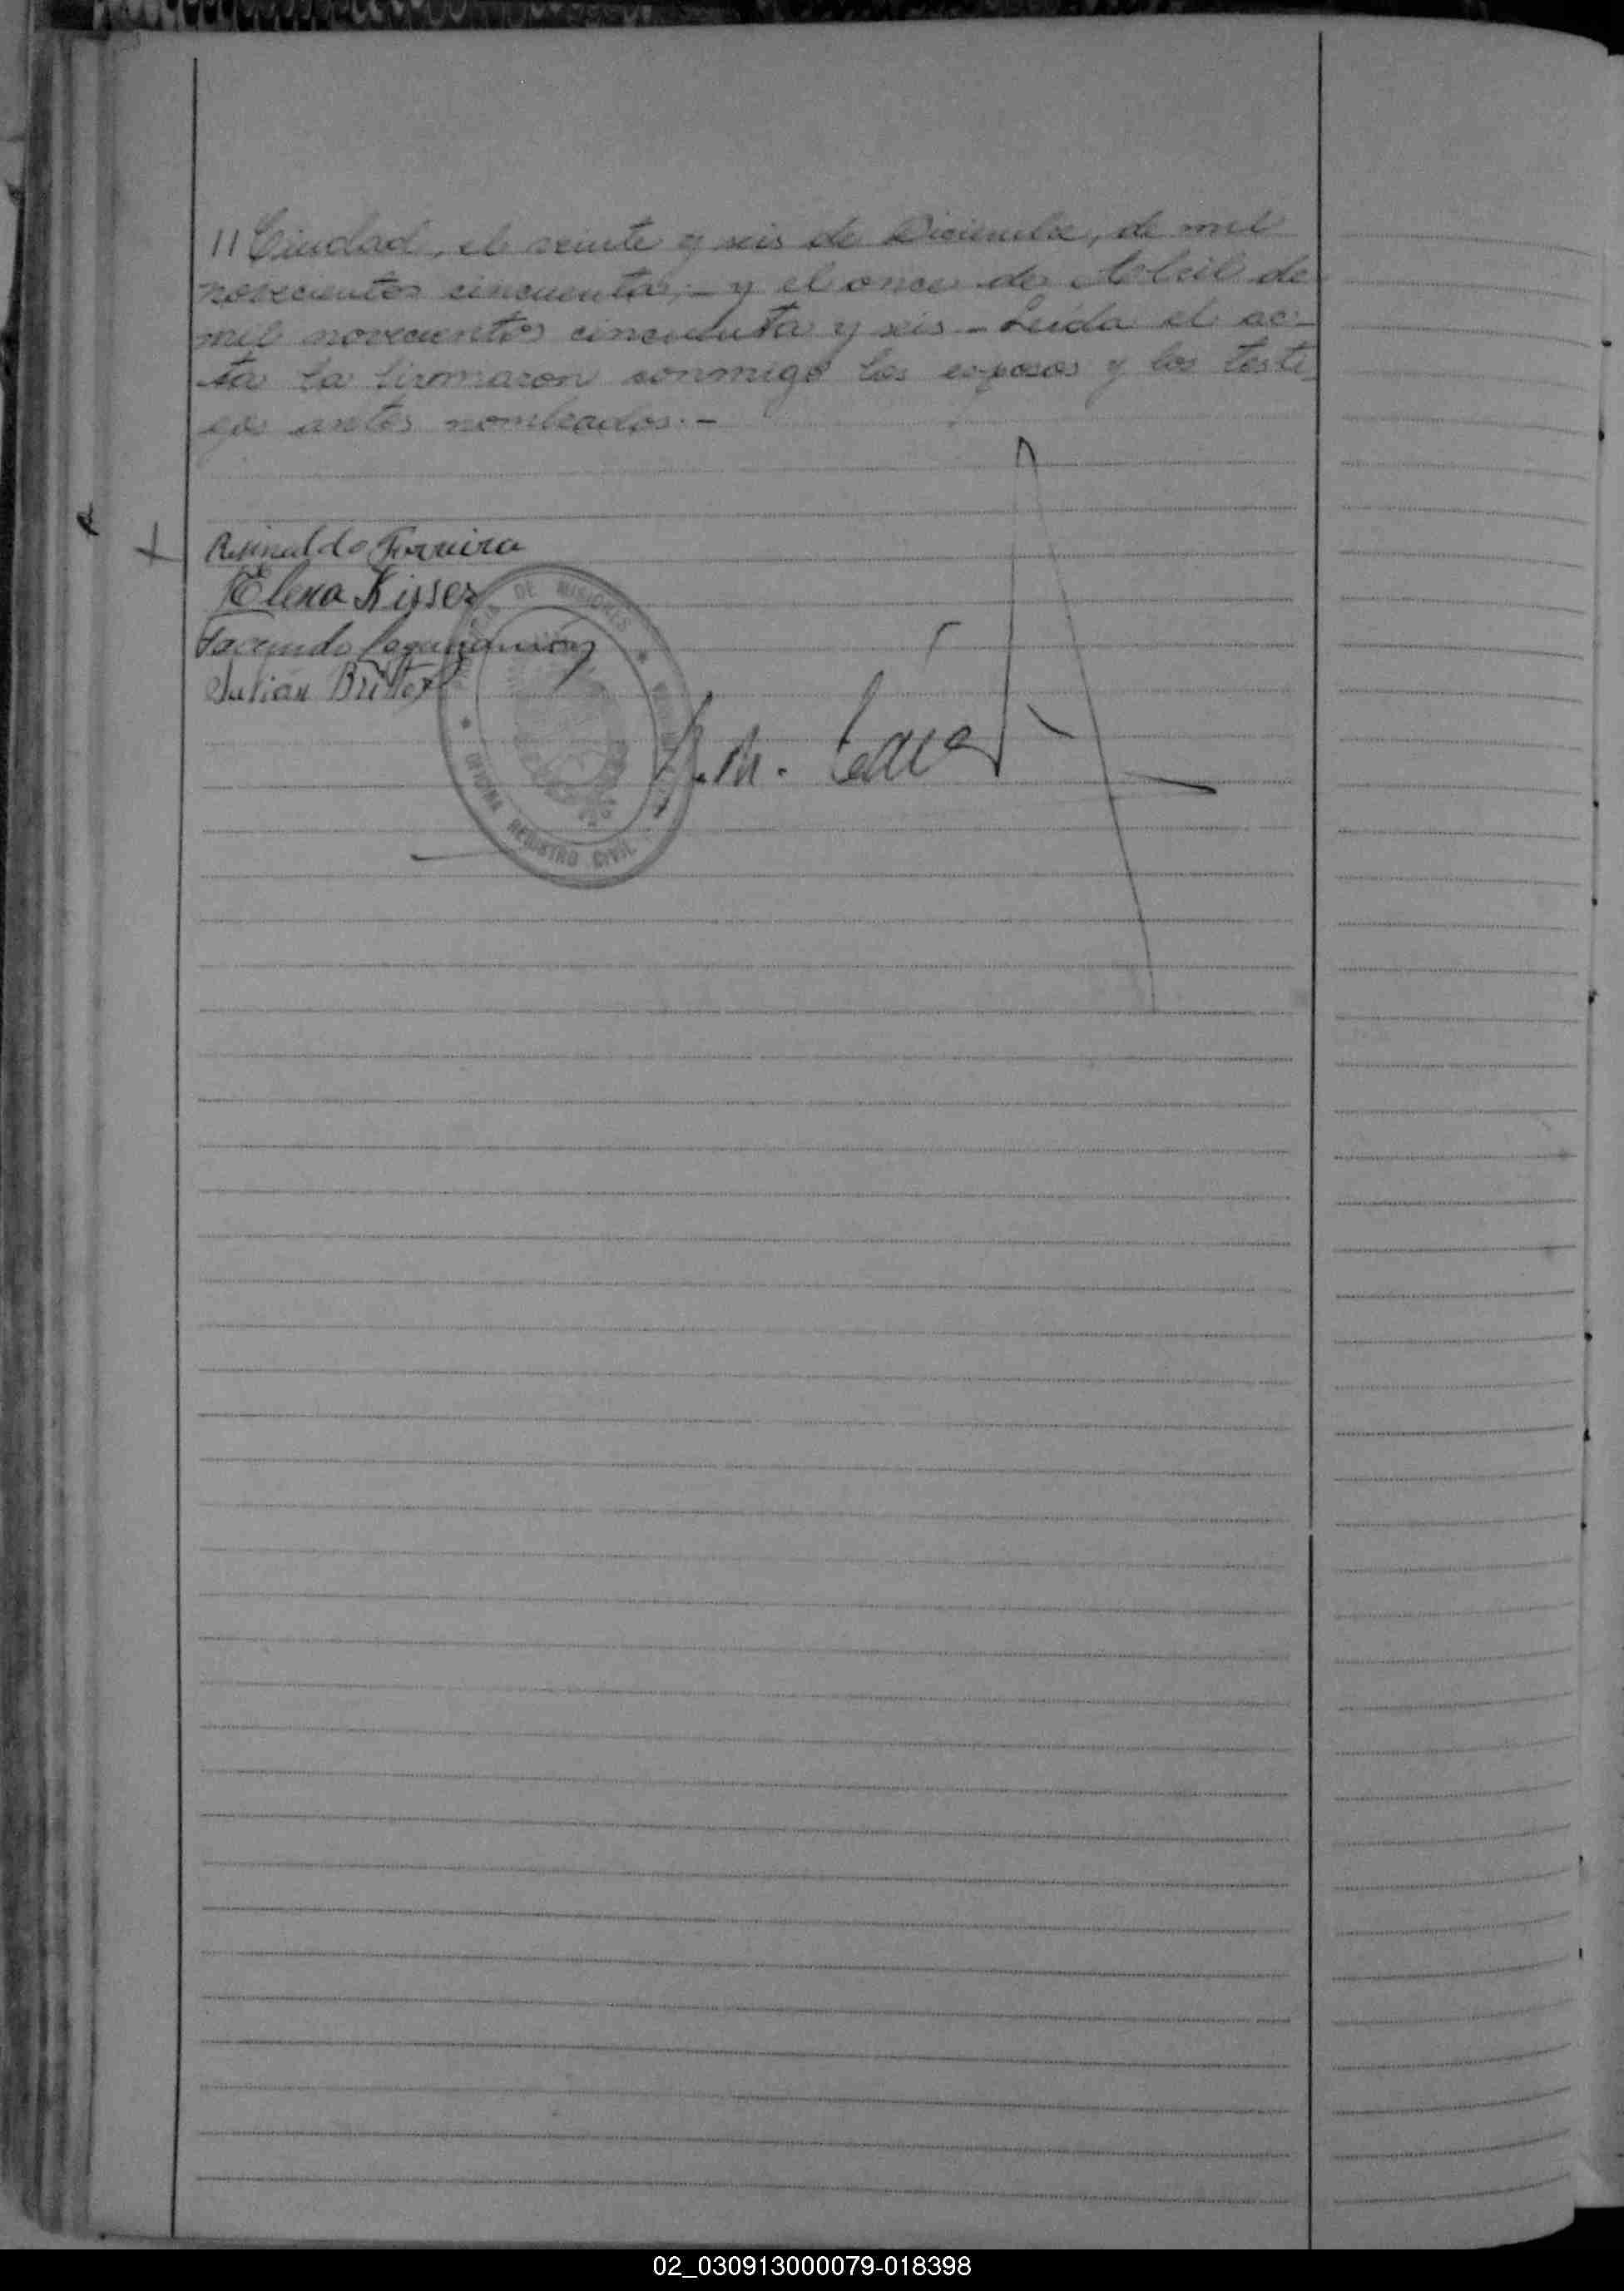 11 Ciudad, el veinte y seis de Diciembre, de mil
novecientos cincuenta, - y el once de Abril de
mil novecientos cincuenta y seis - Leida el ac-
ta la firmaron conmigo los esposos y los testi-
gos antes nombrados. -
Reinaldo Ferreira
Elena Kisser
Facundo
Julián Britez
DE MISIONES
OFICINA REGISTRO CIVIL
02_030913000079-018398